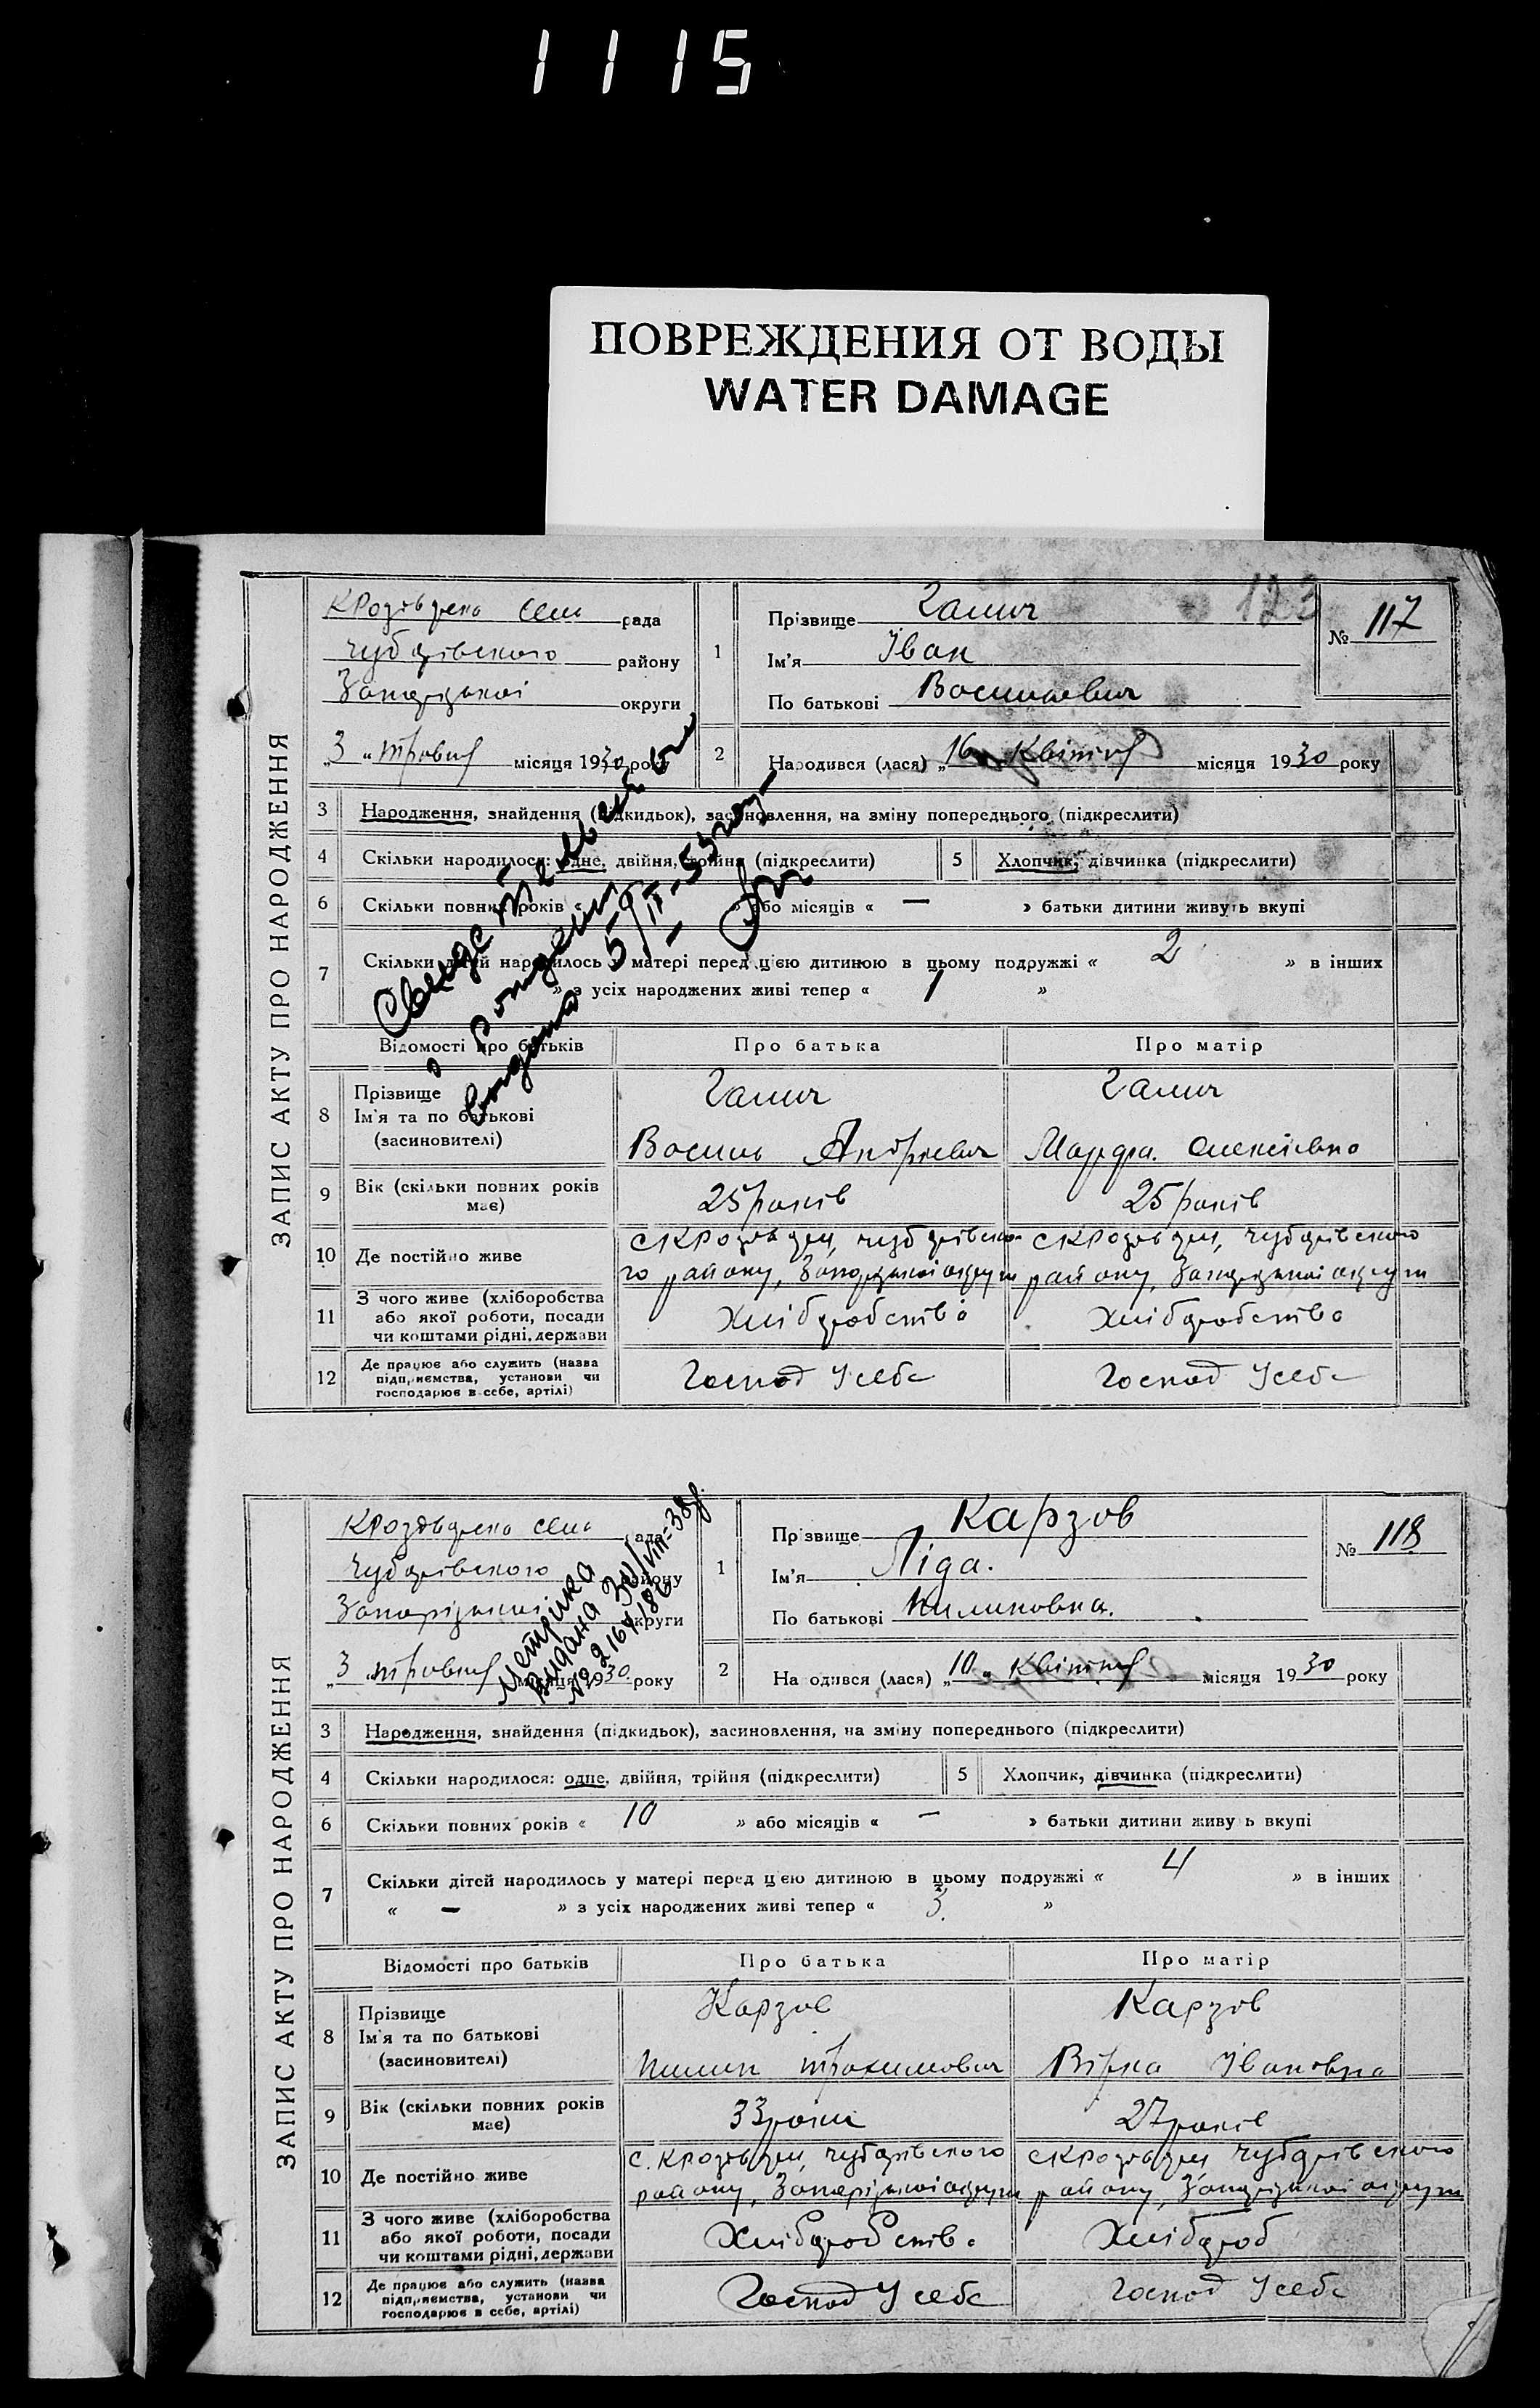 1115
ПОВРЕЖДЕНИЯ ОТ ВОДЫ
WATER DAMAGE
123
ЗАПИС АКТУ ПРО НАРОДЖЕННЯ
рада
Чубарівського району
Запорізької округи
„3 „ травня місяця 1930 року
1
Прізвище Галич
Ім'я Іван
По батькові Василевич
№ 117
2 Народився (лася) „16 „ Квітня місяця 1930 року
3 Народження, знайдення (підкидьок), засиновлення, на зміну попереднього (підкреслити)
4 Скільки народилося: одне, двійня, трійня (підкреслити)
5 Хлопчик, дівчинка (підкреслити)
6 Скільки повних років « » або місяців « — » батьки дитини живуть вкупі
7 Скільки дітей народилось у матері перед цією дитиною в цьому подружжі « 2 » в інших
» з усіх народжених живі тепер « 1 »
Свидетельство
о рождении
выдано 5/II-53 году
Відомості про батьків Про батька Про матір
8 Прізвище
Ім'я та по батькові
(засиновителі)
Галич
Василь Андрієвич
Галич
Марфа Олексієвна
9 Вік (скільки повних років
має)
25 років
25 років
10 Де постійно живе
Чубарівсько-
го району, Запорізької округи
Чубарівського
району, Запорізької округи
11 З чого живе (хліборобства
або якої роботи, посади
чи коштами рідні, держави
Хліборобство
Хліборобство
12 Де працює або служить (назва
підприємства, установи чи
господарює в себе, артілі)
Господ У себе
Господ У себе
ЗАПИС АКТУ ПРО НАРОДЖЕННЯ
рада
Чубарівського району
Запорізької округи
„3 „ травня місяця 1930 року
Метрика
видана 30/VIII-38 р.
№
1
Прізвище Карзов
Ім'я Ліда.
По батькові Пилиповна.
№ 118
2 Народився (лася) „10 „ Квітня місяця 1930 року
3 Народження, знайдення (підкидьок), засиновлення, на зміну попереднього (підкреслити)
4 Скільки народилося: одне, двійня, трійня (підкреслити)
5 Хлопчик, дівчинка (підкреслити)
6 Скільки повних років « 10 » або місяців « — » батьки дитини живу ь вкупі
7 Скільки дітей народилось у матері перед цією дитиною в цьому подружжі « 4 » в інших
« — » з усіх народжених живі тепер « 3 »
Відомості про батьків Про батька Про матір
8 Прізвище
Ім'я та по батькові
(засиновителі)
Карзов
Пилип Трохимович
Карзов
Вірка Івановна
9 Вік (скільки повних років
має)
33 роки
27 років
10 Де постійно живе
Чубарівського
району, Запорізької округи
Чубарівського
району, Запорізької округи
11 З чого живе (хліборобства
або якої роботи, посади
чи коштами рідні, держави
Хліборобство
Хлібороб
12 Де працює або служить (назва
підприємства, установи чи
господарює в себе, артілі)
Господ У себе
Господ У себе